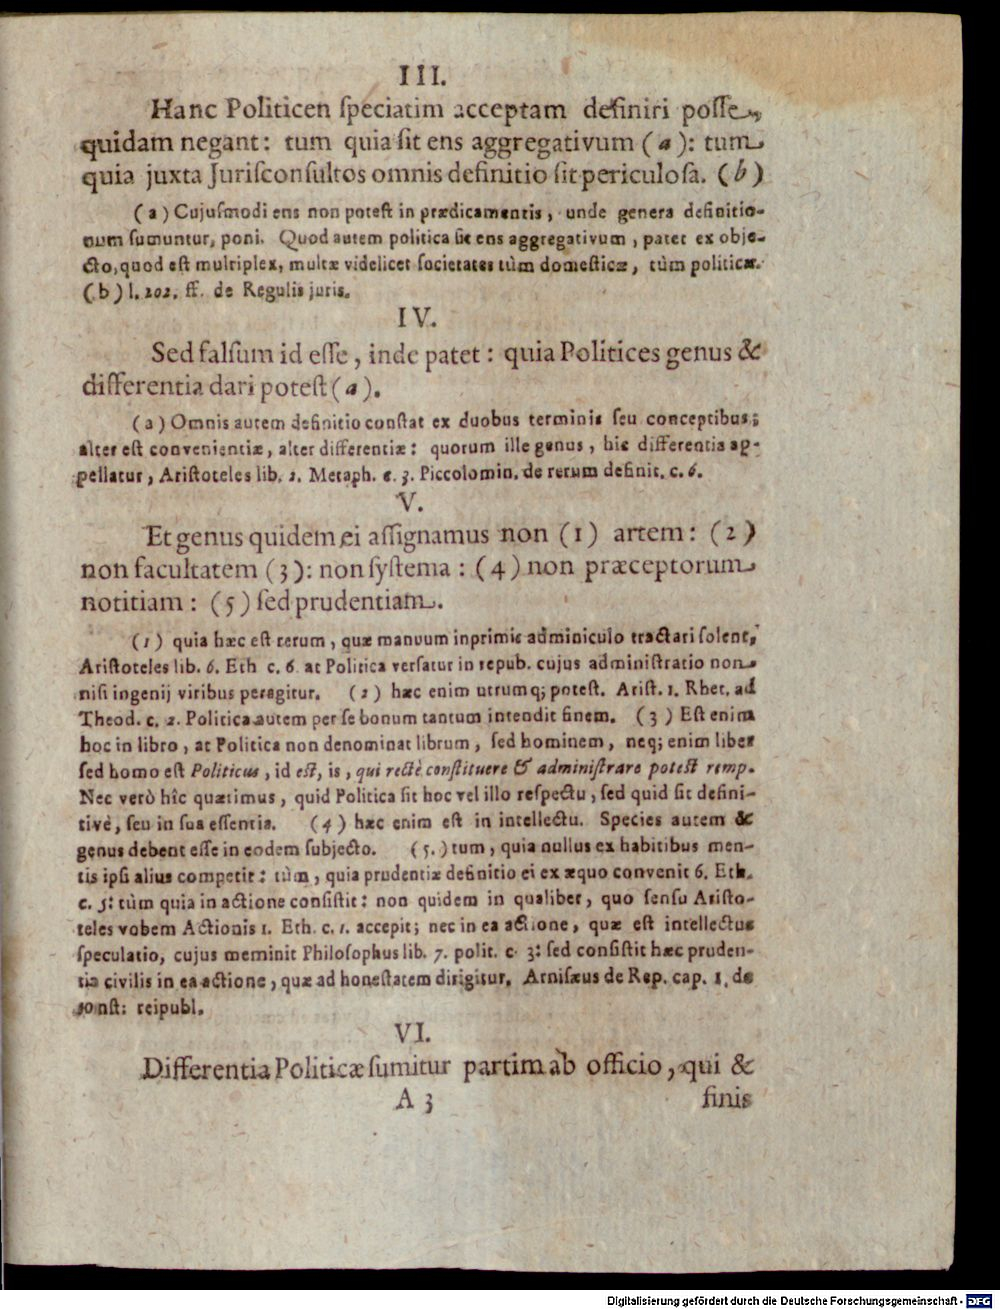 III.
Hanc Politicen ſpeciatim acceptam definiri poſſe,
quidam negant: tum quia ſit ens aggregativum (a): tum
quia juxta Juriſconſultos omnis definitio ſit periculoſa. (b)
(a) Cujuſmodi ens non poteſt in prædicamentis, unde genera definitio-
num ſumuntur, poni. Quod autem politica ſit ens aggregativum, patet ex obje-
cto, quod eſt multiplex, multæ videlicet ſocietates tùm domeſticæ, tùm politicæ.
(b) l. 202. ff. de Regulis juris.
IV.
Sed falſum id eſſe, inde patet: quia Politices genus &
differentia dari poteſt (a).
(a) Omnis autem definitio conſtat ex duobus terminis ſeu conceptibus;
alter eſt convenientiæ, alter differentiæ: quorum ille genus, hic differentia ap-
pellatur, Ariſtoteles lib. 1. Metaph. c. 3. Piccolomin. de rerum definit. c. 6.
V.
Et genus quidem ei aſſignamus non (1) artem: (2)
non facultatem (3): non ſyſtema: (4) non præceptorum
notitiam: (5) ſed prudentiam.
(1) quia hæc eſt rerum, quæ manuum inprimis adminiculo tractari ſolent,
Ariſtoteles lib. 6. Eth c. 6. at Politica verſatur in repub. cujus adminiſtratio non
niſi ingenij viribus peragitur. (2) hæc enim utrumq; poteſt. Ariſt. 1. Rhet. ad
Theod. c. 2. Politica autem per ſe bonum tantum intendit finem. (3) Eſt enim
hoc in libro, at Politica non denominat librum, ſed hominem, neq; enim liber
ſed homo eſt Politicus, id eſt, is, qui rectè conſtituere & adminiſtrare poteſt remp.
Nec verò hîc quærimus, quid Politica ſit hoc vel illo reſpectu, ſed quid ſit defini-
tivè, ſeu in ſua eſſentia. (4) hæc enim eſt in intellectu. Species autem &
genus debent eſſe in eodem ſubjecto. (5.) tum, quia nullus ex habitibus men-
tis ipſi alius competit: tùm, quia prudentiæ definitio ei ex æquo convenit 6. Eth.
c. 5: tùm quia in actione conſiſtit: non quidem in qualibet, quo ſenſu Ariſto-
teles vobem Actionis 1. Eth. c. 1. accepit; nec in ea actione, quæ eſt intellectus
ſpeculatio, cujus meminit Philoſophus lib. 7. polit. c. 3: ſed conſiſtit hæc pruden-
tia civilis in ea actione, quæ ad honeſtatem dirigitur. Arniſæus de Rep. cap. 1. de
const: reipubl.
VI.
Differentia Politicæ ſumitur partim ab officio, qui &
A 3 finis
Digitalisierung gefördert durch die Deutsche Forschungsgemeinschaft - DFG